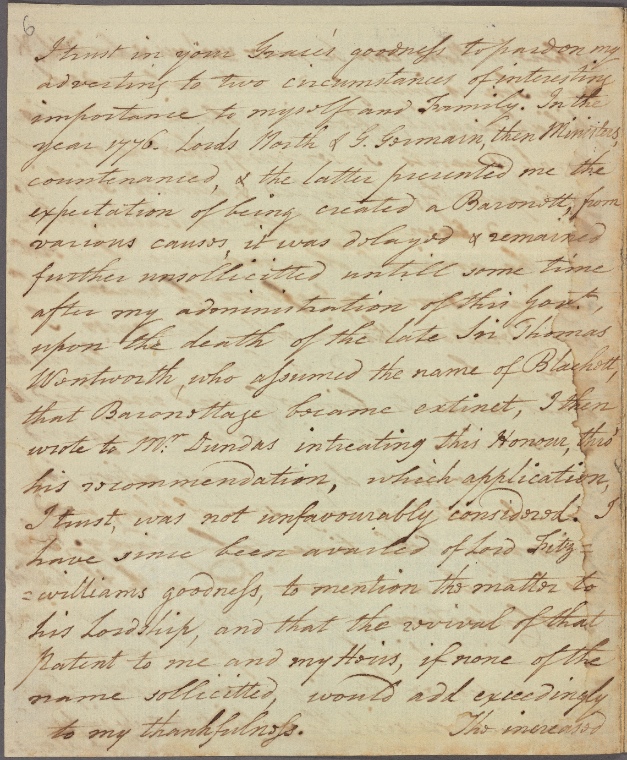 6
I trust in your Grace's goodness to pardon my
adverting to two circumstances of interesting
importance to myself and Family. In the
year 1776. Lords North & G. Germain, then Ministers,
countenanced, & the latter presented me the
expectation of being created a Baronett, from
various causes, it was delayed & remained
further unsollicitted untill some time
after my administration of this Govt.,
upon the death of the late Sir Thomas
Wentworth, who assumed the name of Blackett,
that Baronettage became extinct, I then
wrote to Mr. Dundas intreating this Honour, thro
his recommendation, which application,
I trust, was not unfavourably considered. I
have since been availed of Lord Fitz=
=williams goodness, to mention the matter to
his Lordship, and that the revival of that
Patent to me and my Heirs, if none of the
name sollicitted, would add exceedingly
to my thankfulness. The increased